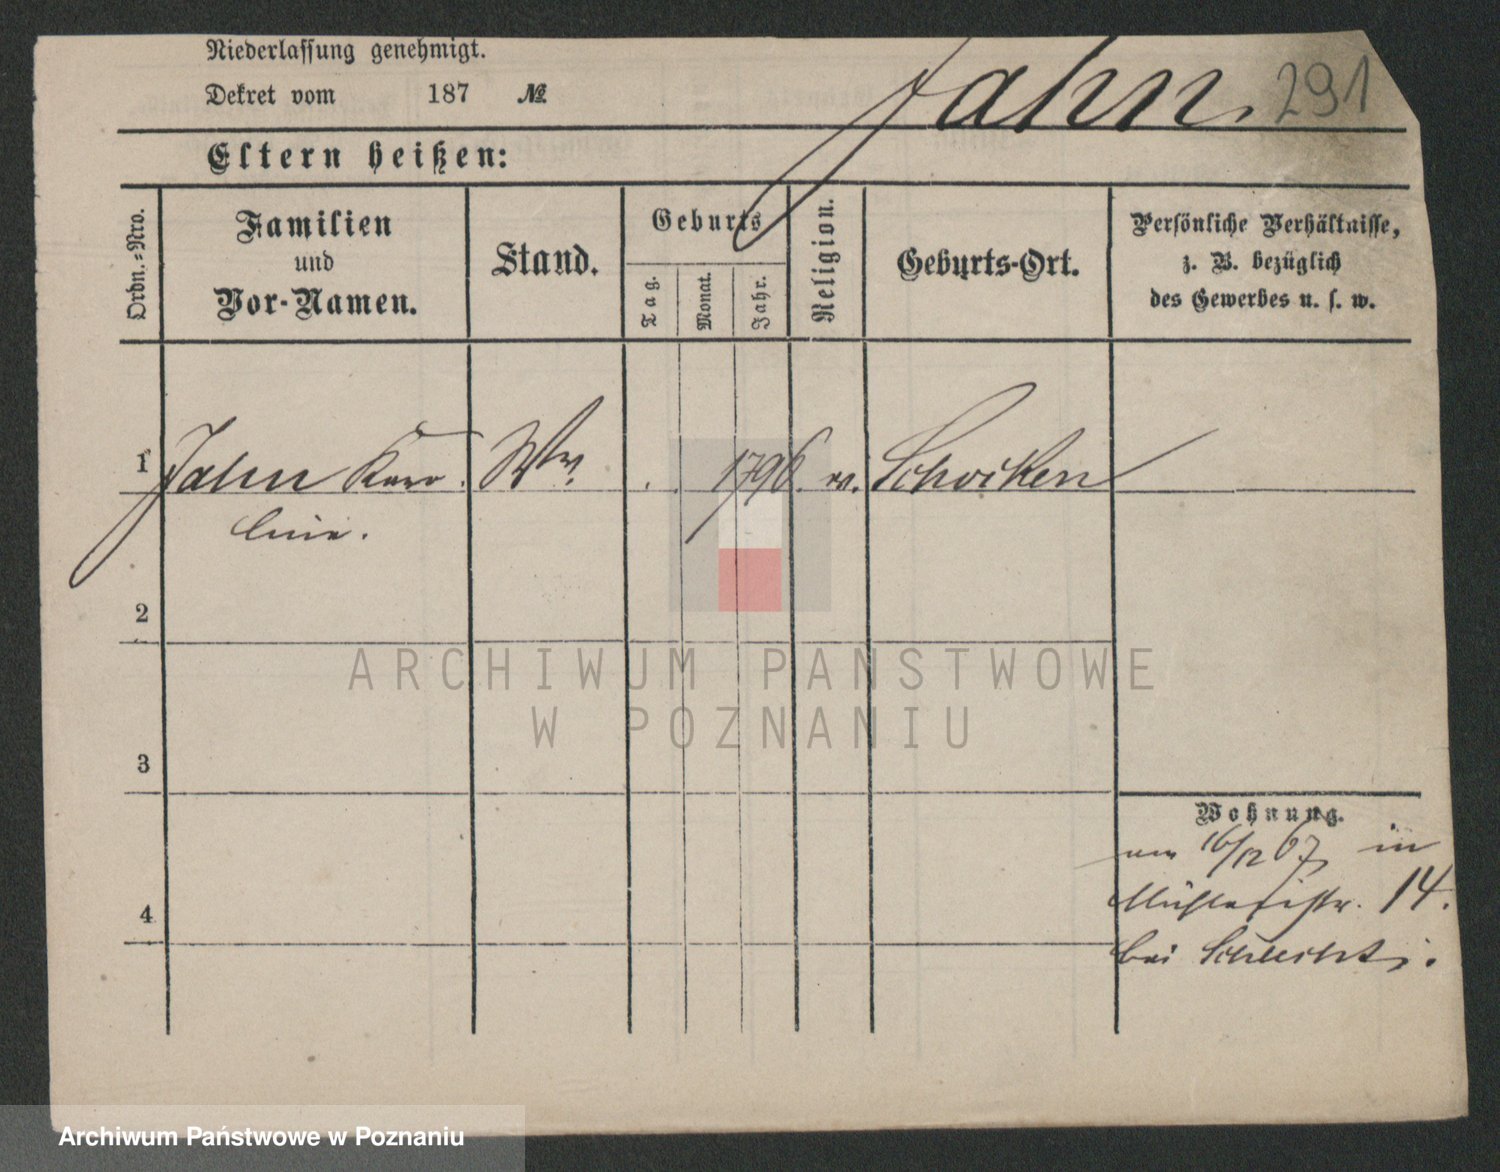 Niederlassung genehmigt.
Dekret vom 187 №
Jahn 291
Eltern heißen:
Ordn.-Nro.
Familien
und
Vor-Namen.
Stand.
Geburts
Tag.
Monat.
Jahr.
Religion.
Geburts-Ort.
Persönliche Verhältnisse,
z. B. bezüglich
des Gewerbes u. s. w.
1 Jahn Karo Ww. 1796. ev. Schocken
line.
2
3
4
Wohnung.
am 16/12 67 in
Mühlenstr. 14.
bei
ARCHIWUM PAŃSTWOWE
W POZNANIU
Archiwum Państwowe w Poznaniu